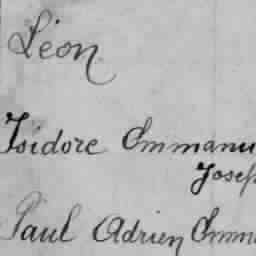 Léon
Isidore Emmanu
Josep
Paul Adrien Emma